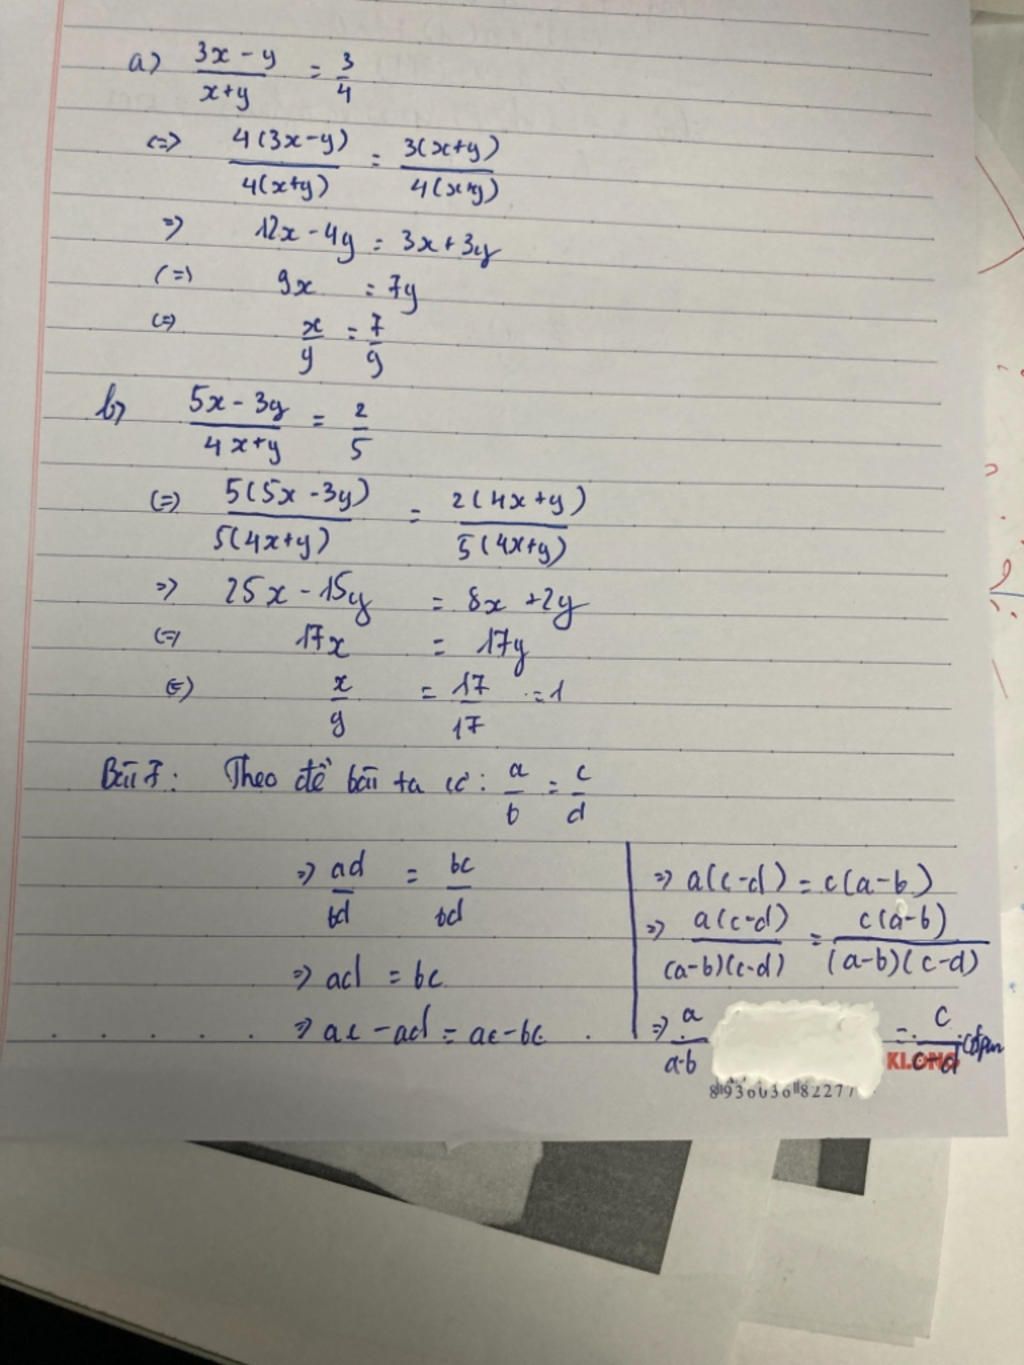 a) (3x - y)/(x+y) = 3/4
<=> 4(3x-y)/4(x+y) = 3(x+y)/4(x+y)
=> 12x - 4y = 3x + 3y
<=> 9x = 7y
<=> x/y = 7/9
b) (5x - 3y)/(4x+y) = 2/5
<=> 5(5x - 3y)/5(4x+y) = 2(4x+y)/5(4x+y)
=> 25x - 15y = 8x + 2y
<=> 17x = 17y
<=> x/y = 17/17 = 1
Bài 7: Theo đề bài ta có: a/b = c/d
=> ad/bd = bc/bd
=> ad = bc
=> ac - ad = ac - bc
=> a(c-d) = c(a-b)
=> a(c-d)/(a-b)(c-d) = c(a-b)/(a-b)(c-d)
=> a/a-b = c/c-d (đpcm
KLONG